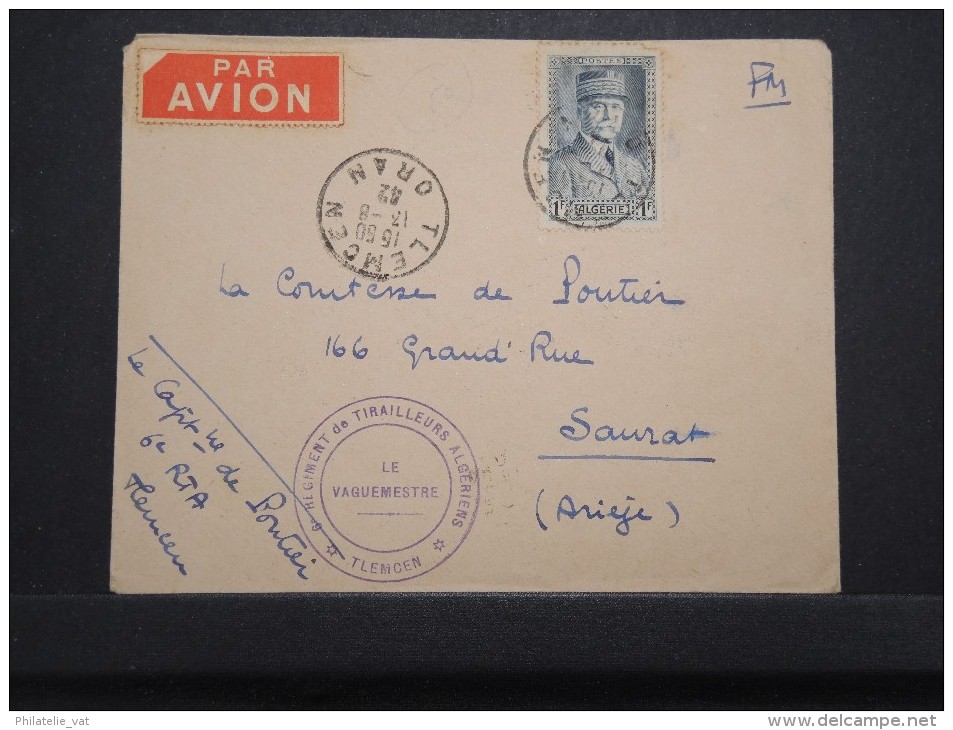 PAR
AVION
POSTES
1F ALGÉRIE 1F
FM
TLEMCEN
15 50
17-8
42
ORAN
La Comtesse de Pontier
166 Grand'Rue
Saurat
(Ariège)
Le Capitne de Pontier
6e RTA
Tlemcen
6e REGIMENT de TIRAILLEURS ALGÉRIENS
LE
VAGUEMESTRE
TLEMCEN
Philatelie_vat
delcampe.net